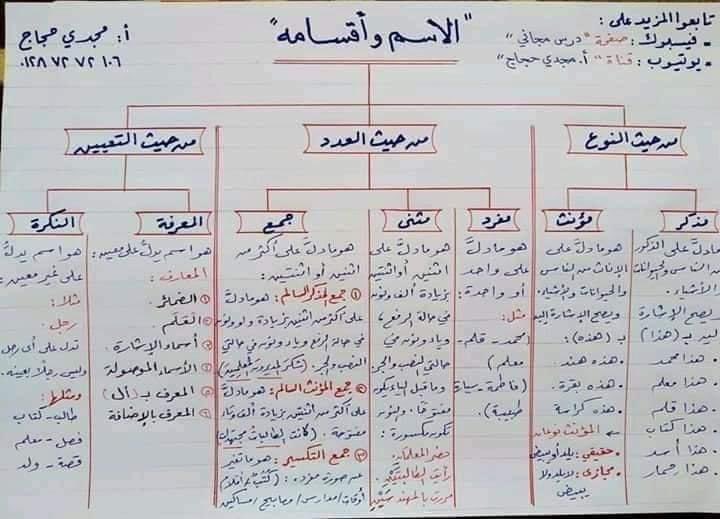 تابعوا المزيد على:
- فيسبوك: صفحة "درس مجاني"
- يوتيوب: قناة "أ. مجدي حجاج"
"الاسم وأقسامه"
أ: مجدي حجاج
٠١٢٨ ٧٢ ٧٢ ١٠٦
من حيث النوع
من حيث العدد
من حيث التعيين
مذكر
مادلَّ على الذكور
من الناس والحيوانات
الأشياء.
يصح الإشارة
إليه بـ (هذا)
• هذا محمد
• هذا معلم
• هذا قلم
• هذا كتاب
• هذا أسد
• هذا حمار
مؤنث
هو مادلَّ على
الإناث من الناس
والحيوانات والأشياء.
ويصح الإشارة إليه
بـ (هذه):
• هذه هند.
• هذه بقرة.
• هذه كراسة
المؤنث نوعان
• حقيقي: يلد أو يبيض
• مجازى: لا يلد ولا
يبيض
مفرد
هو مادلَّ
على واحد
أو واحدة:
مثل:
(محمد - قلم -
معلم)
(فاطمة - سيارة
طبيبة).
مثنى
هو مادلَّ على
اثنين أو اثنتين
بزيادة ألف ونون
في حالة الرفع،
وياء ونون في
حالتي النصب والجر
وما قبل الياء يكون
مفتوحًا، والنون
تكون مكسورة:
حضر المعلمانِ.
رأيت الطالبتَيْنِ.
مررت بالمهندسَيْنِ
جمع
هو مادلَّ على أكثر من
اثنين أو اثنتين:
① جمع المذكر السالم: هو مادلَّ
على أكثر من اثنين بزيادة واو ونون
في حالة الرفع وياء ونون في حالتي
النصب والجر:
② جمع المؤنث السالم: هو مادلَّ
على أكثر من اثنتين بزيادة ألف وتاء
مفتوحة. (كانت الطالبات مجتهدات)
③ جمع التكسير: هو ما تغير
عن صورة مفرده: (كُتُب/أقلام/
أوقات/مدارس/مصابيح/مساكين
المعرفة
هو اسم يدلُّ على معين:
المعارف:
① الضمائر.
② العَلَم.
③ أسماء الإشارة.
④ الأسماء الموصولة
⑤ المعرف بـ (أل)
⑥ المعرف بالإضافة
النكرة
هو اسم يدلُّ
على غير معين:
مثل:
رجل:
تدل على أى رجل
وليس رجلاً بعينه.
ومثلها:
طالب - كتاب
فصل - معلم
قصة - ولد